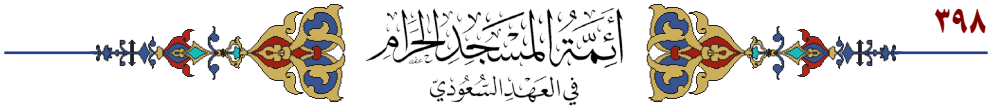 ٣٩٨
أئمة المسجد الحرام
في العهد السعودي